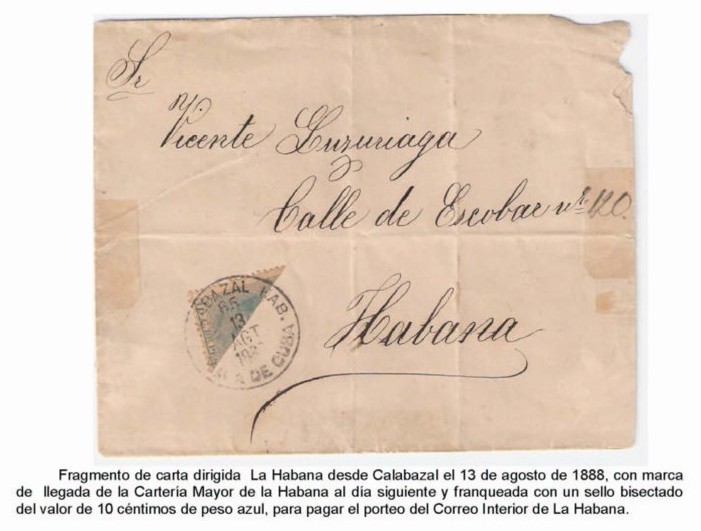 Sr
Vicente Luzuriaga
Calle de Escobar nº 120.
Habana
ABAZAL HAB.
13
AGT
DE CUBA
Fragmento de carta dirigida La Habana desde Calabazal el 13 de agosto de 1888, con marca
de llegada de la Cartería Mayor de la Habana al día siguiente y franqueada con un sello bisectado
del valor de 10 céntimos de peso azul, para pagar el porteo del Correo Interior de La Habana.